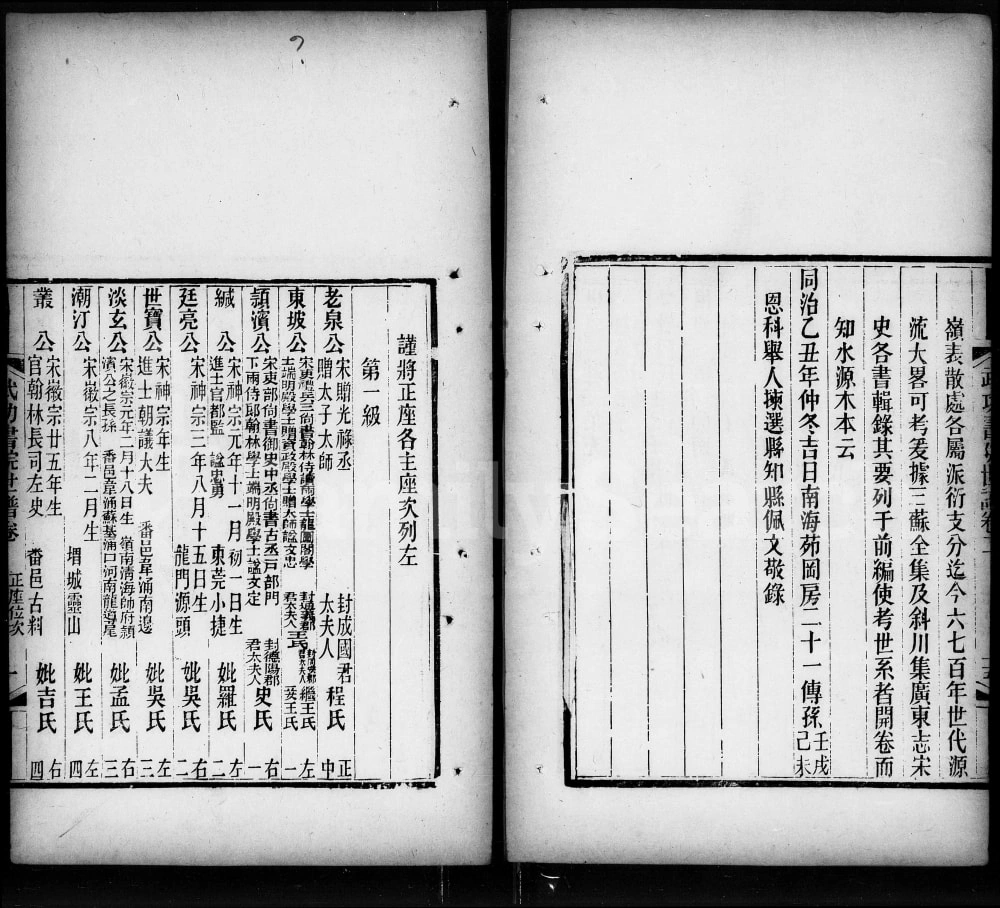 嶺表散處各屬派衍支分迄今六七百年世代源
流大畧可考爰據三蘇全集及斜川集廣東志宋
史各書輯錄其要列于前編使考世系者開卷而
知水源木本云
同治乙丑年仲冬吉日南海苑岡房二十一傳孫壬戌己未
恩科舉人揀選縣知縣佩文敬錄
謹將正座各主座次列左
第一級
老泉公 宋贈光祿丞 贈太子太師 封成國君太夫人 程氏 正中
東坡公 士端明殿學士贈資政殿學士贈太師諡文忠 王氏 繼王氏 左一
潁濱公 下兩侍郎翰林學士端明殿學士諡文定 封德陽郡君太夫人 史氏 右一
緘公 宋神宗元年十一月初一日生 進士官都監 諡忠勇 東莞小捷 妣羅氏 左二
廷亮公 宋神宗三年八月十五日生 龍門源頭 妣吳氏 右二
世寶公 宋神宗年生 進士朝議大夫 番邑茸涌南邊 妣吳氏 左三
淡玄公 宋徽宗元年二月十八日生 嶺南清海師府潁濱公之長孫 番邑韋涌蘇基涌口河南龍道尾 妣孟氏 右三
潮汀公 宋徽宗八年二月生 增城靈山 妣王氏 左四
叢公 宋徽宗廿五年生 官翰林長司左史 番邑古料 妣吉氏 右四
武功書院世譜卷 正座位次 一